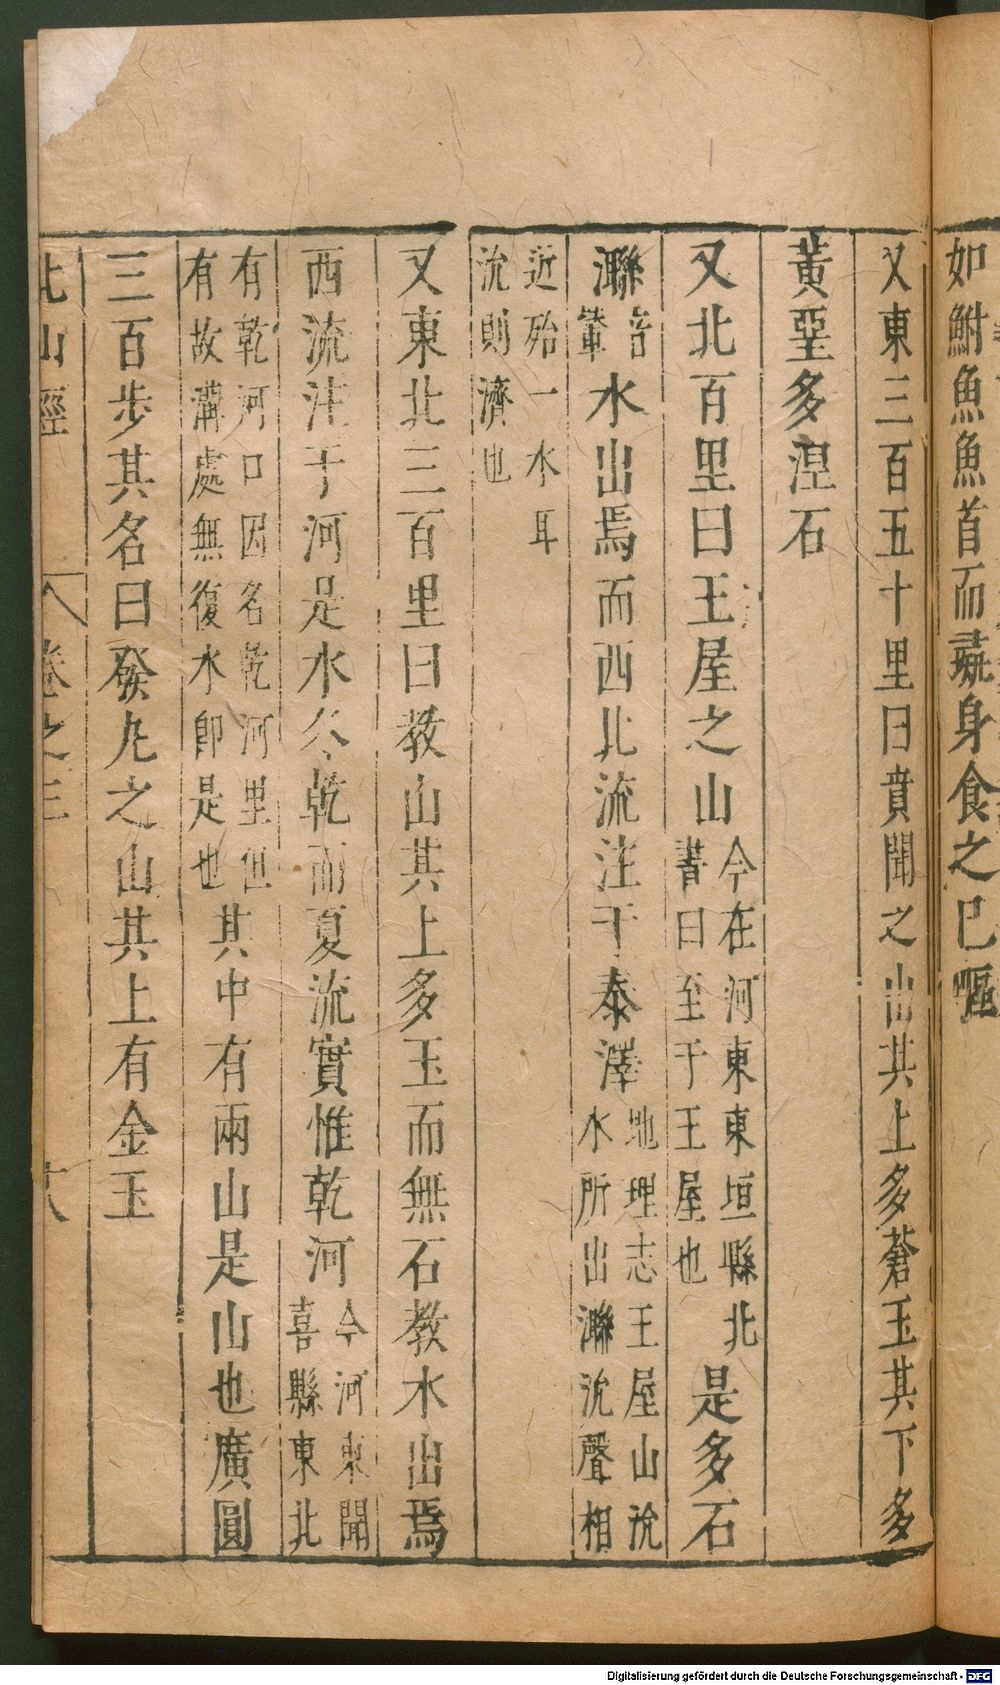 如鮒魚魚首而彘身食之已嘔
又東三百五十里曰賁聞之山其上多蒼玉其下多
黃堊多涅石
又北百里曰王屋之山今在河東東垣縣北書曰至于王屋也是多石
㶌音輦水出焉而西北流注于泰澤地理志王屋山沇水所出㶌沇聲相
近殆一水耳沇則濟也
又東北三百里曰教山其上多玉而無石教水出焉
西流注于河是水冬乾而夏流實惟乾河今河東聞喜縣東北
有乾河口因名乾河里但有故溝處無復水卽是也其中有兩山是山也廣圓
三百步其名曰發丸之山其上有金玉
北山經 卷之三 十八
Digitalisierung gefördert durch die Deutsche Forschungsgemeinschaft - DFG